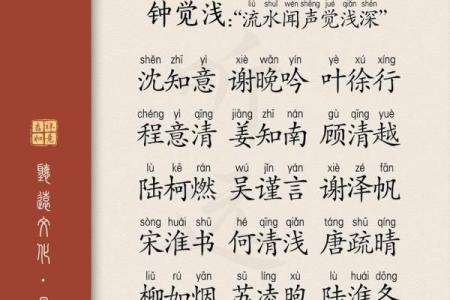 liú shuǐ wén shēng jué qiǎn shēn
钟觉浅:“流水闻声觉浅深”
shěn zhī yì xiè wǎn yín yè xú xíng
沈知意 谢晚吟 叶徐行
chéng yì qīng jiāng zhī nán gù qīng yuè
程意清 姜知南 顾清越
lù kē rán wú jǐn yán xiè zé fān
陆柯燃 吴谨言 谢泽帆
sòng huái shū hé qīng qiǎn táng shū qíng
宋淮书 何清浅 唐疏晴
liǔ rú yān sū líng xù lù huái dōng
柳如烟 苏凌煦 陆淮冬
文化